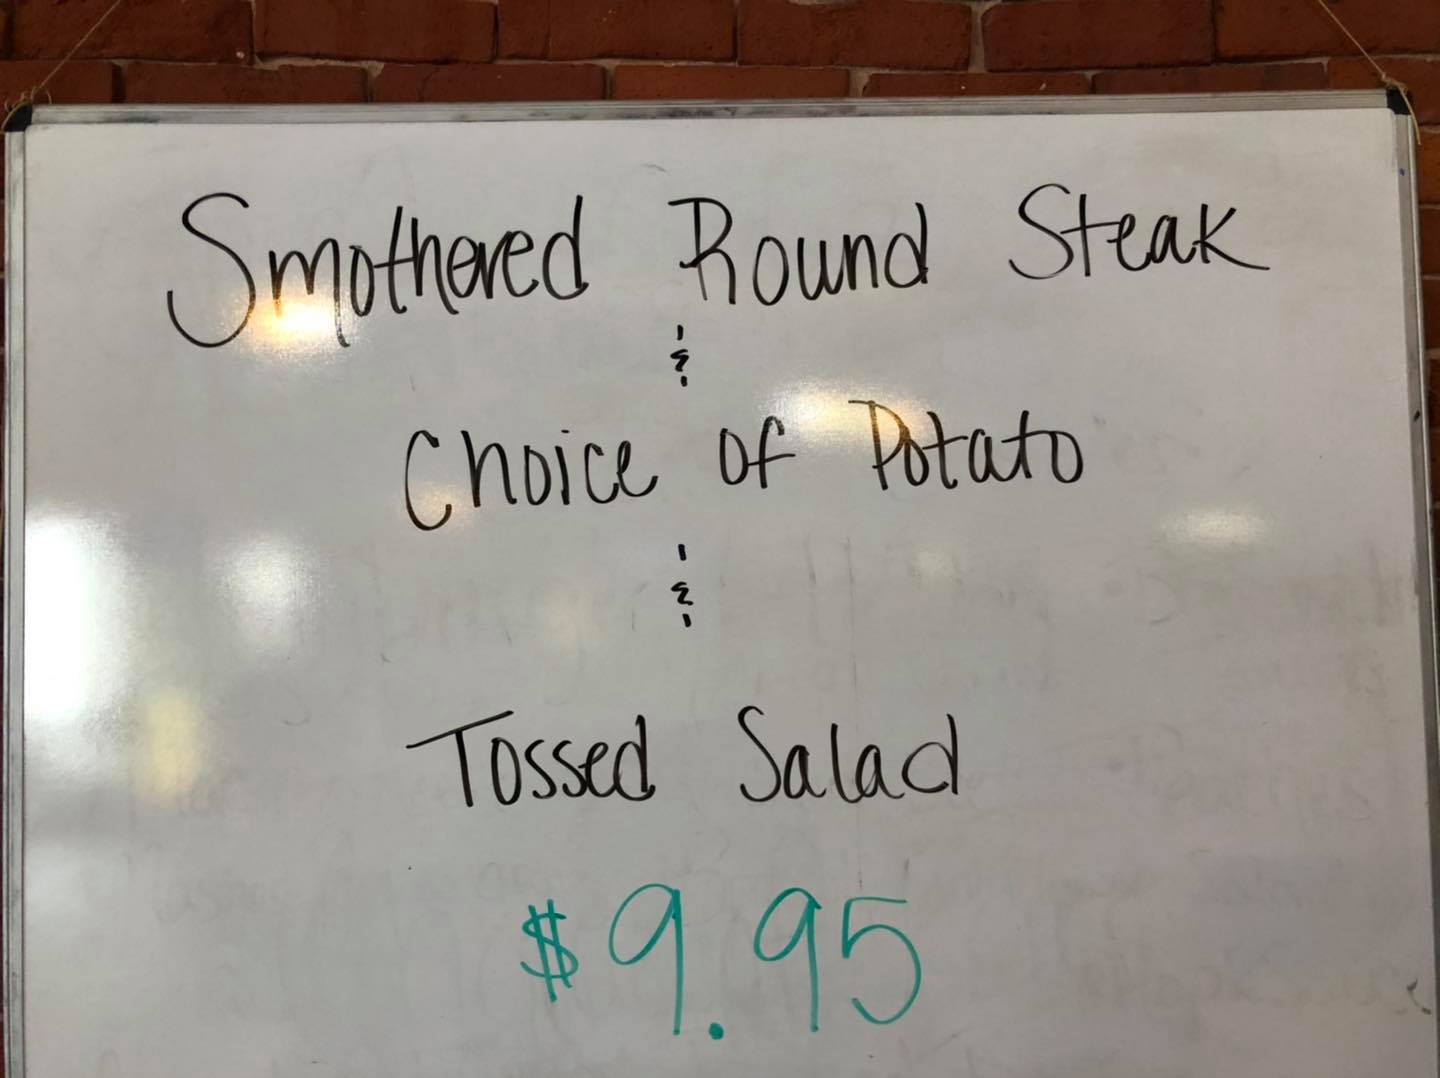 Smothered Round Steak
&
Choice of Potato
&
Tossed Salad
$9.95